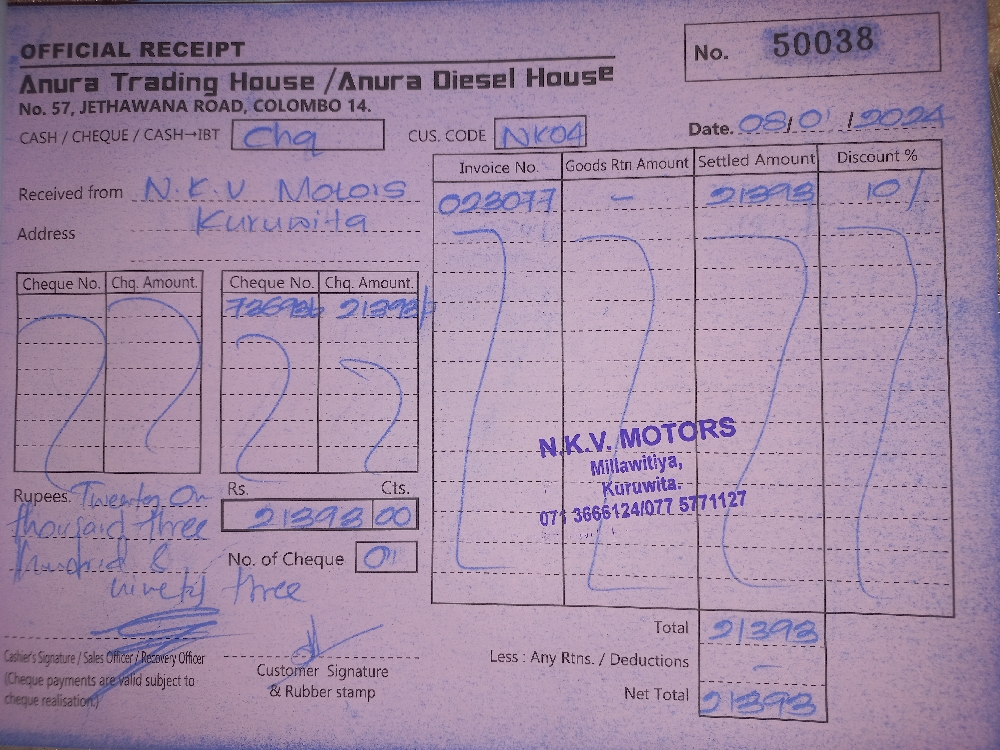 OFFICIAL RECEIPT
No. 50038
Anura Trading House /Anura Diesel House
No. 57, JETHAWANA ROAD, COLOMBO 14.
CASH / CHEQUE / CASH→IBT Chq CUS. CODE NK04 Date. 08/01/2024
Received from N.K.V Motors
Kuruwita
Address
Invoice No. Goods Rtn Amount Settled Amount Discount %
023077 – 21393 10/
Cheque No. Chq. Amount. Cheque No. Chq. Amount.
21393/
N.K.V. MOTORS
Millawitiya,
Kuruwita.
071 3666124/077 5771127
Rupees. Twenty On
thousand three
hundrid &
ninety three
Rs. Cts.
21393 00
No. of Cheque 01
Total 21393
Less : Any Rtns. / Deductions –
Net Total 21393
Cashier's Signature / Sales Officer / Recovery Officer
(Cheque payments are valid subject to
cheque realisation.)
Customer Signature
& Rubber stamp